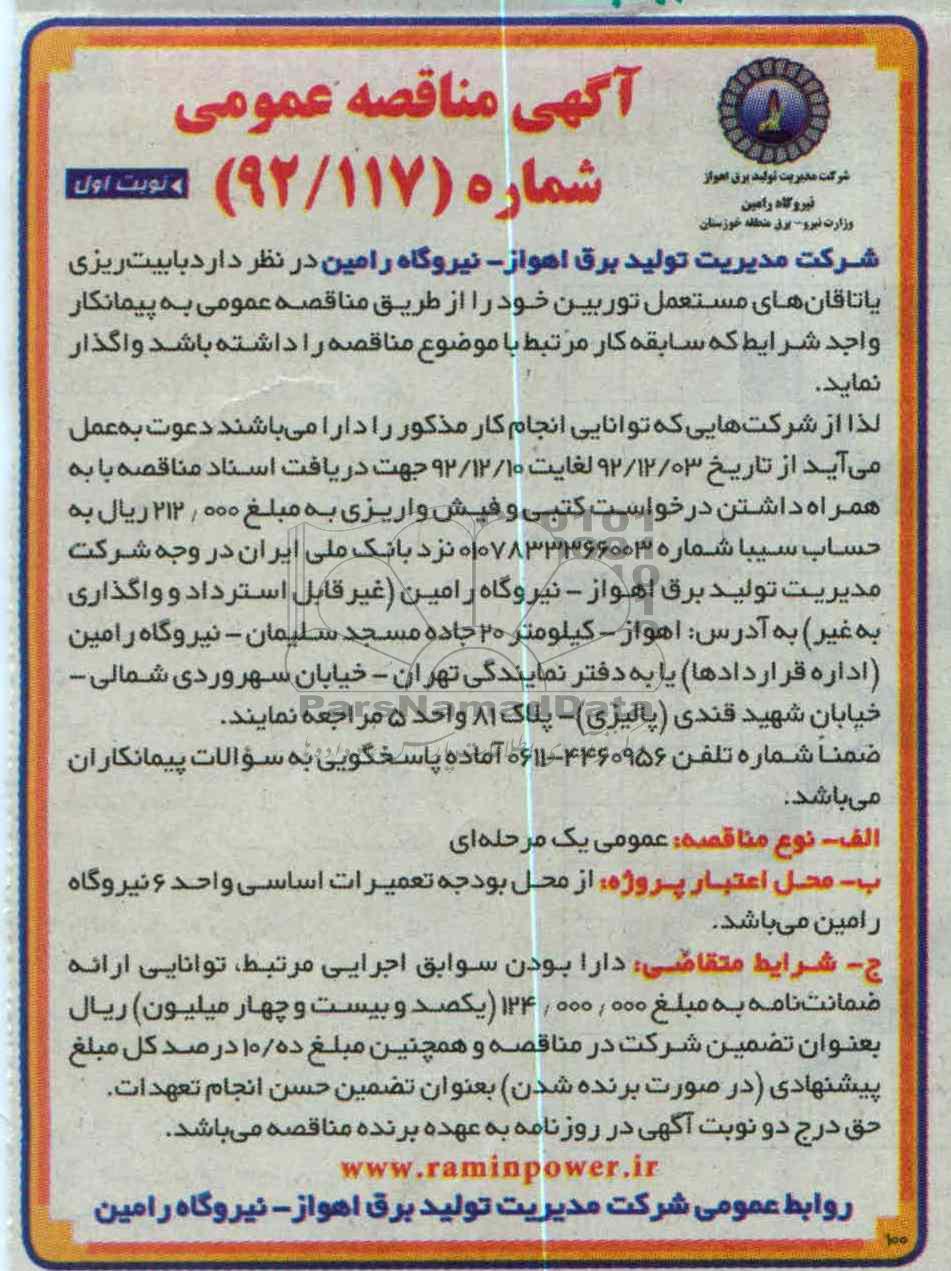 آگهی مناقصه عمومی
شماره (۹۲/۱۱۷)
نوبت اول
شرکت مدیریت تولید برق اهواز
نیروگاه رامین
وزارت نیرو- برق منطقه خوزستان
شرکت مدیریت تولید برق اهواز- نیروگاه رامین در نظر دارد بابیت‌ریزی
یاتاقان‌های مستعمل توربین خود را از طریق مناقصه عمومی به پیمانکار
واجد شرایط که سابقه کار مرتبط با موضوع مناقصه را داشته باشد واگذار
نماید.
لذا از شرکت‌هایی که توانایی انجام کار مذکور را دارا می‌باشند دعوت به‌عمل
می‌آید از تاریخ ۹۲/۱۲/۰۳ لغایت ۹۲/۱۲/۱۰ جهت دریافت اسناد مناقصه با به
همراه داشتن درخواست کتبی و فیش واریزی به مبلغ ۲۱۲,۰۰۰ ریال به
حساب سیبا شماره ۰۱۰۷۸۳۳۳۶۶۰۰۳ نزد بانک ملی ایران در وجه شرکت
مدیریت تولید برق اهواز - نیروگاه رامین (غیرقابل استرداد و واگذاری
به غیر) به آدرس: اهواز - کیلومتر ۲۰ جاده مسجد سلیمان - نیروگاه رامین
(اداره قراردادها) یا به دفتر نمایندگی تهران - خیابان سهروردی شمالی -
خیابان شهید قندی (پالیزی)- پلاک ۸۱ واحد ۵ مراجعه نمایند.
ضمناً شماره تلفن ۴۴۶۰۹۵۶-۰۶۱۱ آماده پاسخگویی به سؤالات پیمانکاران
می‌باشد.
الف- نوع مناقصه: عمومی یک مرحله‌ای
ب- محل اعتبار پروژه: از محل بودجه تعمیرات اساسی واحد ۶ نیروگاه
رامین می‌باشد.
ج- شرایط متقاضی: دارا بودن سوابق اجرایی مرتبط، توانایی ارائه
ضمانت‌نامه به مبلغ ۱۲۴,۰۰۰,۰۰۰ (یکصد و بیست و چهار میلیون) ریال
بعنوان تضمین شرکت در مناقصه و همچنین مبلغ ده/۱۰ درصد کل مبلغ
پیشنهادی (در صورت برنده شدن) بعنوان تضمین حسن انجام تعهدات.
حق درج دو نوبت آگهی در روزنامه به عهده برنده مناقصه می‌باشد.
www.raminpower.ir
روابط عمومی شرکت مدیریت تولید برق اهواز- نیروگاه رامین
۱۰۰
ParsNamadData